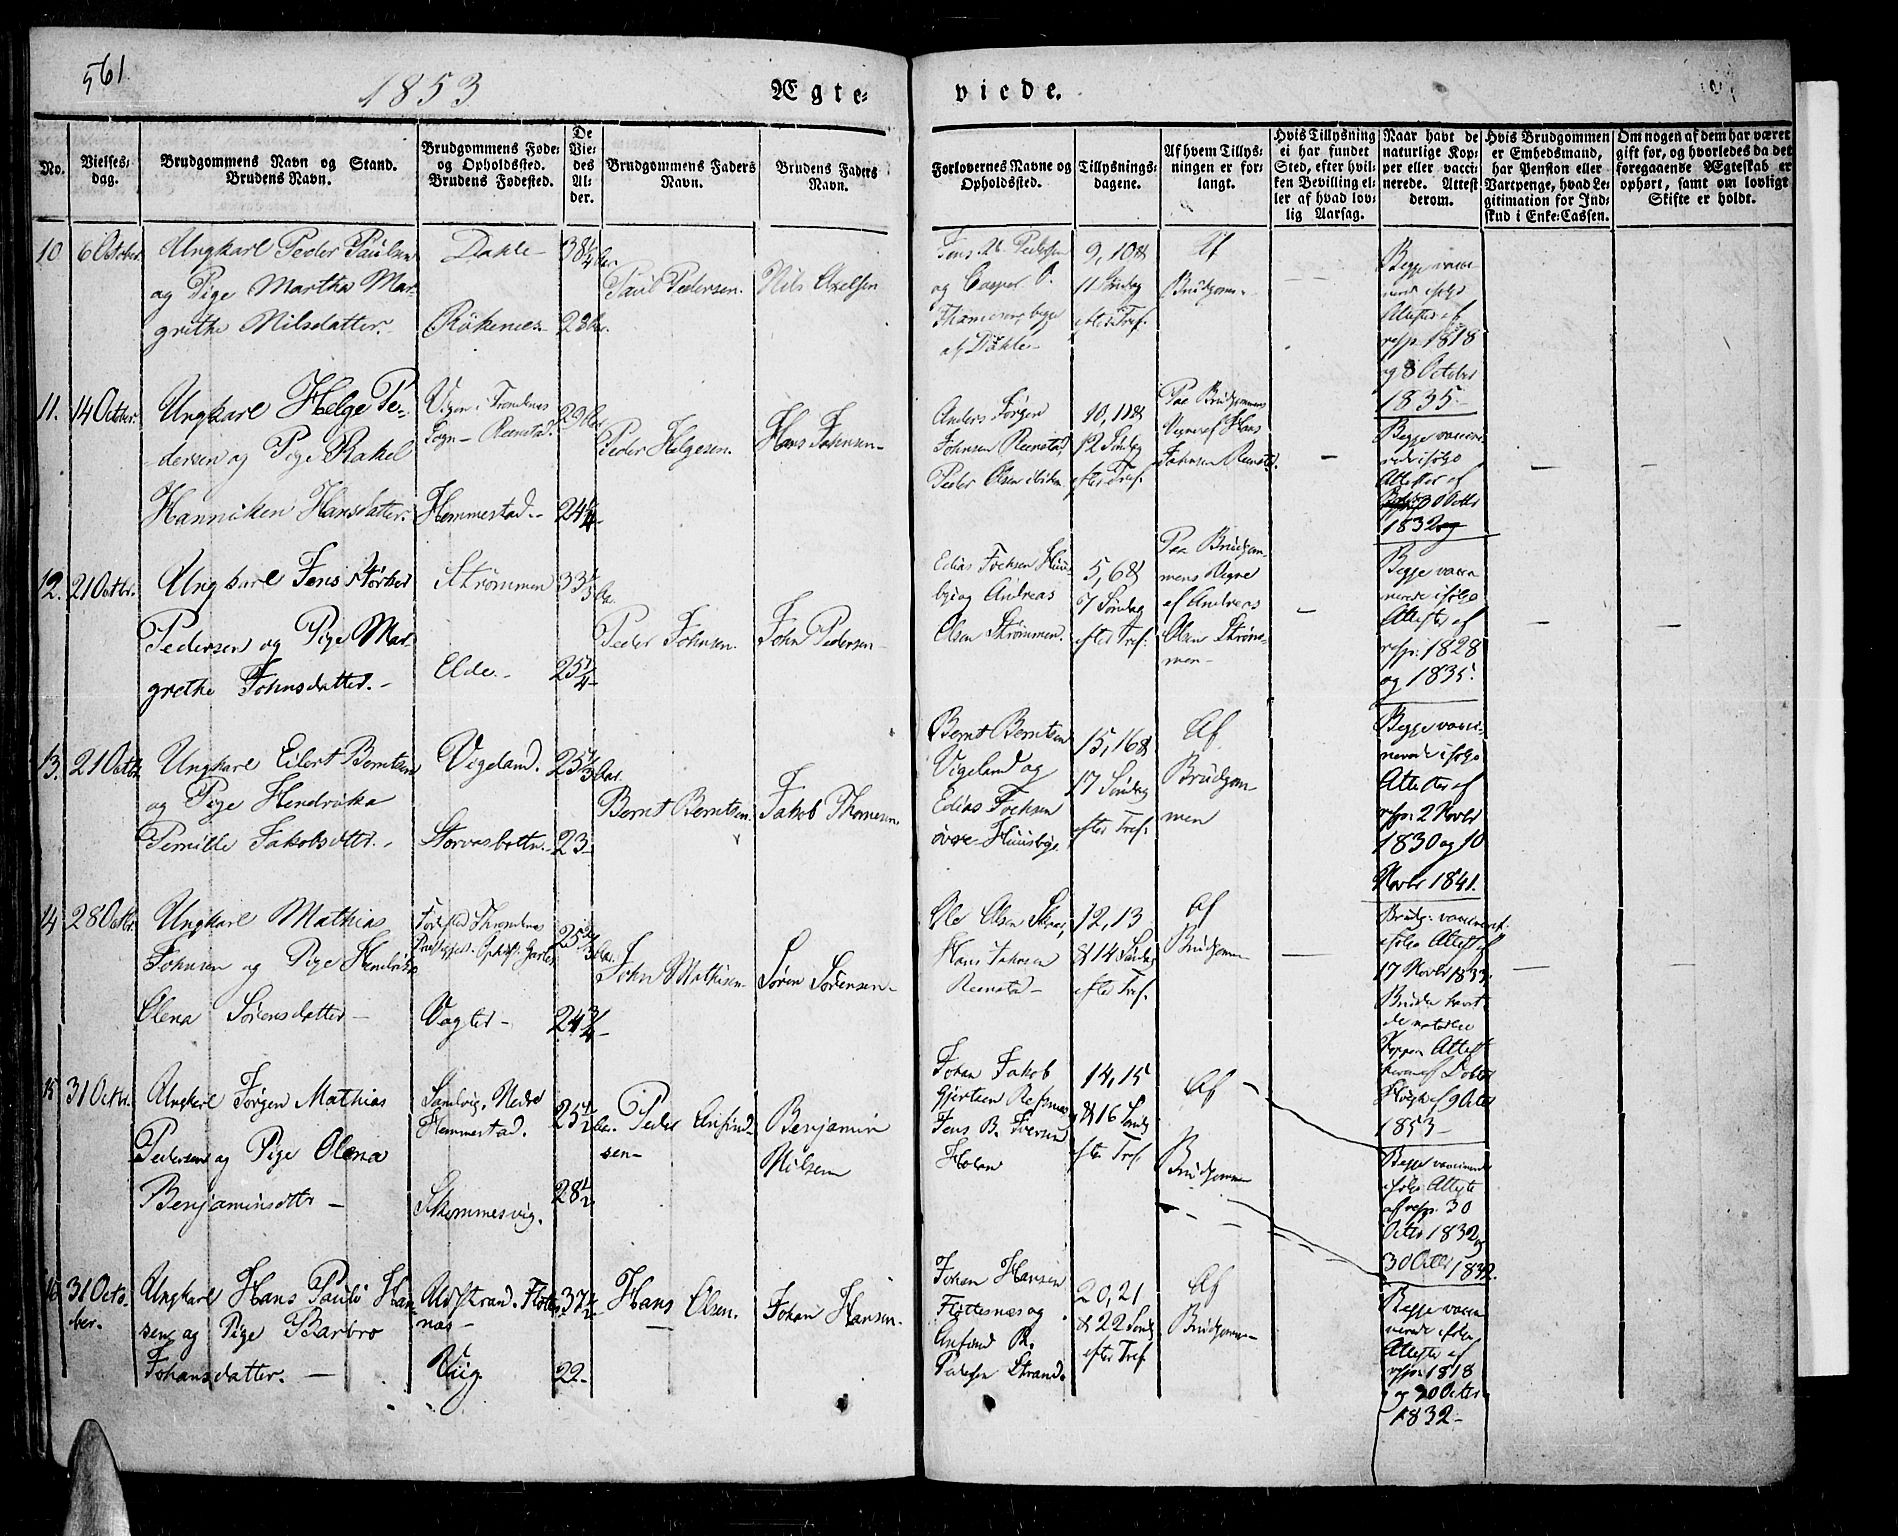 561.
1853
Ægte=
viede.
No.
Vielses-
dag.
Brudgommens Navn og Stand.
Brudens Navn.
Brudgommens Føde-
og Opholdssted.
Brudens Fødested.
De
Vie-
des
Al-
der.
Brudgommens Faders
Navn.
Brudens Faders
Navn.
Forlovernes Navne og
Opholdssted.
Tillysnings-
dagene.
Af hvem Tillys-
ningen er for-
langt.
Hvis Tillysning
ei har fundet
Sted, efter hvil-
ken Bevilling el-
ler af hvad lov-
lig Aarsag.
Naar havt de
naturlige Kop-
per eller vacci-
nerede. Attest
derom.
Hvis Brudgommen
er Embedsmand,
har Pension eller
Vartpenge, hvad Le-
gitimation for Ind-
skud i Enke-Cassen.
Om nogen af dem har været
gift før, og hvorledes da det
foregaaende Ægteskab er
ophørt, samt om lovligt
Skifte er holdt.
10
6 October
Ungkarl Peder Paulsen
og Pige Martha Mar-
grethe Nilsdatter.-
Dahle-
Rökenes-
38 1/4 Aar
23 Aar.
Paul Pedersen.
Nils Axelsen
Jens A. Pedersen
og Casper P.
af Dahle-
9, 10 &
11 Søndag
efter Tref.
Af
Brudgom-
Begge vacci-
nerede ifølge
Attester af
resp. 1818
og 8 October
1835.-
11.
14 Octber.
Ungkarl Helge Pe-
dersen og Pige Rakel
Hanniken Hansdatter.
Vigen i Trondenes
Sogn- Reenstad.
Hemmestad.-
29 Aar
24 1/4-
Peder Helgesen.
Hans Johnsen-
Anders Jörgen
Johnsen Reenstad,
Peder Olsen
10, 11 &
12 Søndag
efter Tref.
Paa Brudgommens
Vegne af Hans
Johnsen Reenstd.
Begge vacci-
nerede ifølge
Attester af
30 Octbr
1832
12.
21 Octbr.
Ungkarl Jens Störker
Pedersen og Pige Mar-
grethe Johnsdatter.-
Strömmen
Elde.-
33 1/3 Aa.
25 1/4-
Peder Johnsen.
John Pedersen-
Edias Jochsen Huus-
bye og Andreas
Olsen Strömmen.
5, 6 &
7 Søndag
efter Tref.
Paa Brudgom-
mens Vegne
af Andreas
Olsen Ström-
men-
Begge vacci-
nerede ifølge
Attester af
resp. 1828
og 1835.
13.
21 Octbr.
Ungkarl Eilert Berntsen
og Pige Hendrika
Pernilde Jakobsdttr.-
Vigeland.
Storvasbottn.-
25 1/3 Aar.
23-
Bernt Berntsen.
Jakob Thomesen
Bernt Berntsen
Vigeland og
Edias Jochsen
øvre Huusbye.
15, 16 &
17 Søndag
efter Tref.
Af
Brudgom
men
Begge vacci-
nerede ifølge
Attester af
resp. 2 Novbr
1830 og 10
Novbr 1841.
14
28 Octbr.
Ungkarl Mathias
Johnsen og Pige Hendrika
Olena Sörensdatter-
Födested Throndenes
Præstegjeld.
Vogter-
25 2/3 Aa.
24 3/4-
John Mathisen-
Sören Sörensen-
Ole Olsen
Hans Johnsen
Reenstad-
12, 13
& 14 Søndag
efter Tref.
Af
Brudgommen
Brudg: vaccineret
ifølge Attest af
17 Novbr 1833;
Bruden havt
de naturlige
Kopper Attest
af 9 Octbr
1853-
15
31 Octbr.
Ungkarl Jörgen Mathias
Pedersen og Pige Olena
Benjaminsdttr-
Sandvig. Nedre
Hemmestad.
Skemmesvig.
25 1/2 Aa.
28 1/2
Peder Anfind-
sen-
Benjamin
Nilsen
Johan Jakob
Gjertsen Refsnæs
Jens B. Iversen
Holan
14, 15
& 16 Sønd.
efter Tref.
Af
Brudgommen
Begge vaccinerede
ifølge Atteste
af resp. 30
Octbr 1832 og
30 Octbr 1832.
16
31 Octo-
ber.
Ungkarl Hans Paulö Han-
sen og Pige Barbro
Johansdatter.-
Flottes-
næs-
Viig.
37 1/2
22-
Hans Olsen.
Johan Hansen.
Johan Hansen
Flottesnæs og
Anfind R.
Pedersen Strand.
20, 21
& 22 Sønd.
efter Tref.
Af
Brudgommen
Begge vacci-
nerede ifølge
Attester af
resp. 1818
og 20 Octbr
1832-